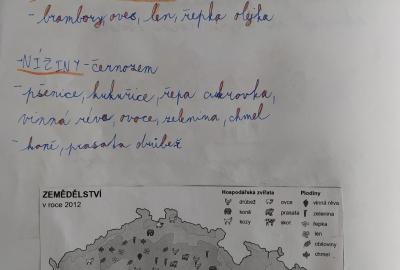 - brambory, oves, len, řepka olejka
- NÍŽINY - černozem
- pšenice, kukuřice, řepa cukrovka,
vinná réva, ovoce, zelenina, chmel
- koně, prasata drůbež
ZEMĚDĚLSTVÍ
v roce 2012
Hospodářská zvířata
drůbež
ovce
koně
prasata
kozy
skot
Plodiny
vinná réva
zelenina
řepka
len
obiloviny
chmel